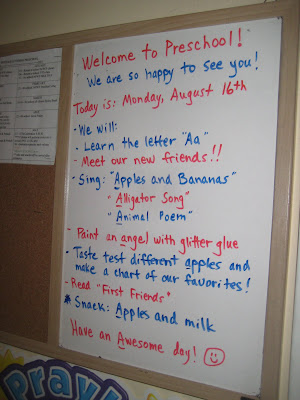 Welcome to Preschool!
We are so happy to see you!
Today is: Monday, August 16th
- We will:
- Learn the letter "Aa"
- Meet our new friends!!
- Sing: "Apples and Bananas"
"Alligator Song"
"Animal Poem"
- Paint an angel with glitter glue
- Taste test different apples and
make a chart of our favorites!
- Read "First Friends"
* Snack: Apples and milk
Have an Awesome day!
Pray